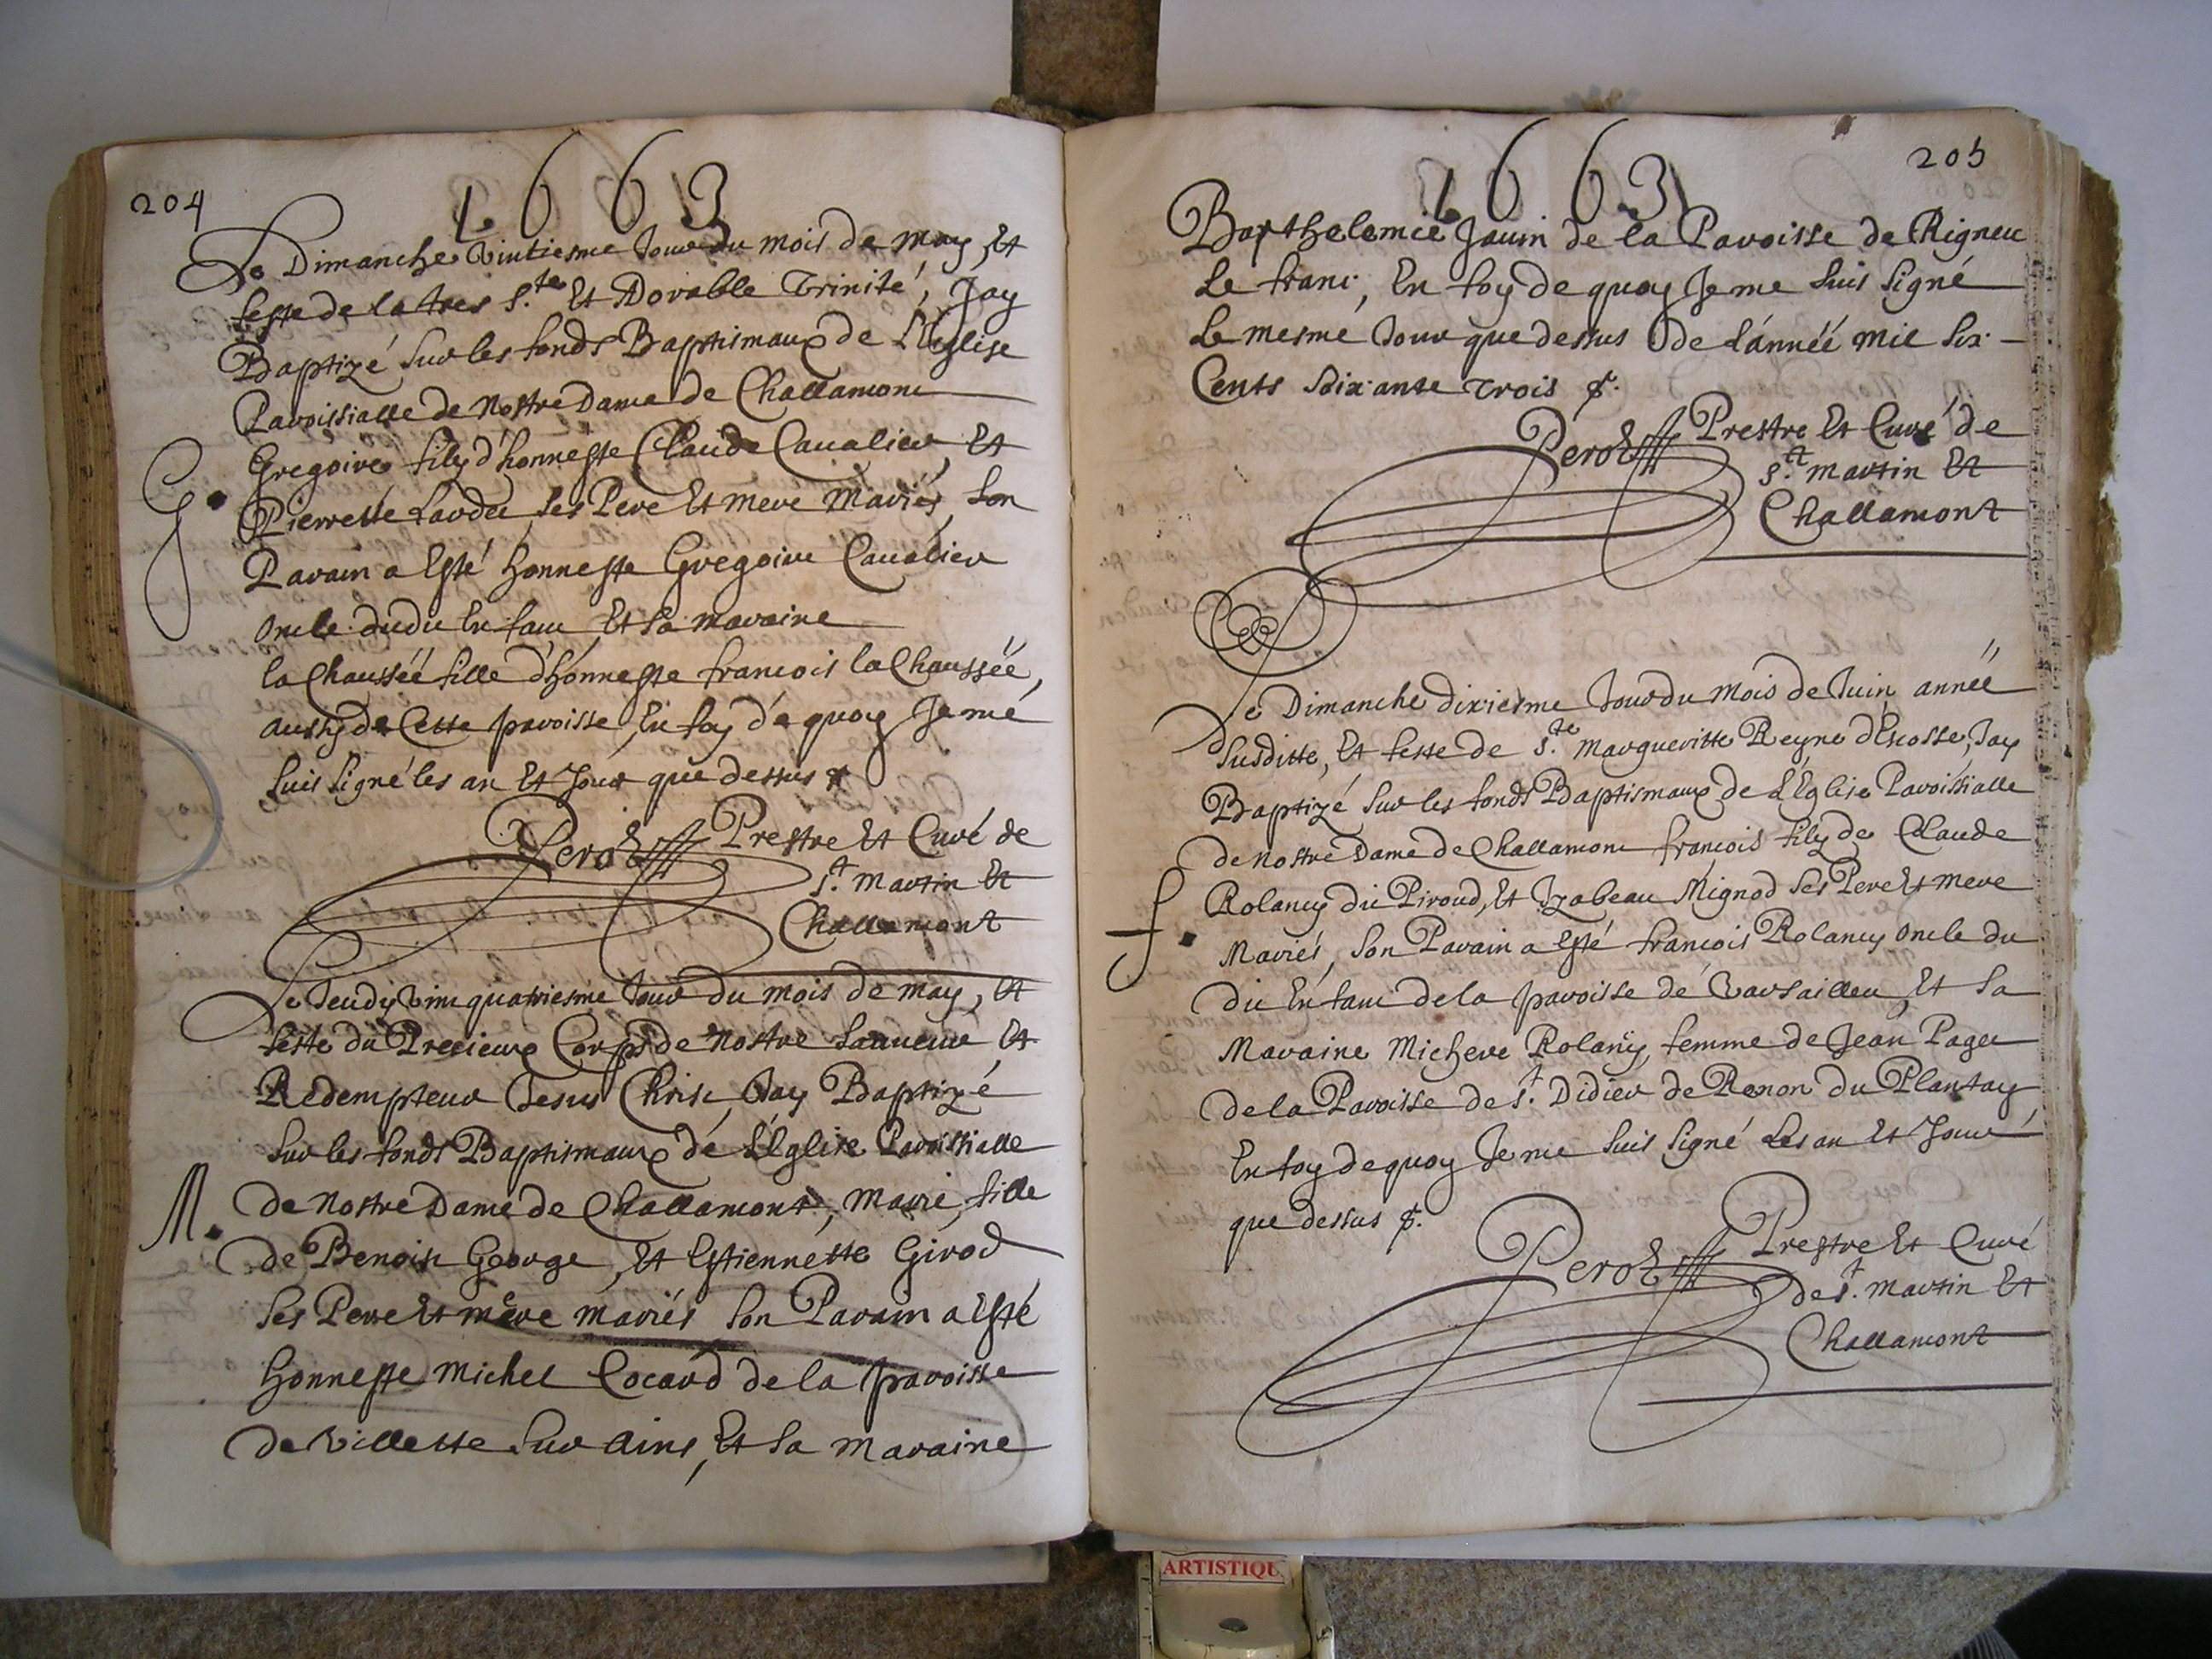 204
1663
Le Dimanche Vintiesme Jour du mois de may, Et
feste de la tres S.te Et Adorable Trinité, Jay
Baptizé Sur les fonds Baptismaux de L'Eglise
Paroissialle de Nostre Dame de Challamont
G.
Gregoire fily d'honneste Claude Caualier, Et
Pierrette ses Pere Et mere Mariés, Son
Parain a Esté honneste Gregoire Caualier
Oncle dudit Enfant Et Sa maraine
la Chaussée fille d'honneste francois la Chaussée,
aussy de Cette paroisse, En foy de quoy Je me
Suis Signé les an Et Jour que dessus
Perot Prestre Et Curé de
S.t Martin Et
Challamont
Le Jeudy Vint quatriesme Jour du mois de may, Et
feste du Precieux Corps de Nostre Et
Redempteur Jesus Christ, Jay Baptizé
Sur les fonds Baptismaux de L'Eglise Paroissialle
M.
de Nostre Dame de Challamont, Marie, fille
de Benoist George, Et Estiennette Girod
Ses Pere Et mere mariés Son Parain a Esté
honneste Michel Cocard de la paroisse
de Villette Sur Ains, Et Sa maraine
205
1663
Barthelemie Jauin de la Paroisse de Rigneu
Le franc, En foy de quoy Je me Suis Signé
Le mesme Jour que dessus de L'année mil Six
Cents Soixante Trois
Perot Prestre Et Curé de
S.t Martin Et
Challamont
Le Dimanche dixiesme Jour du Mois de Juin année
Susditte, Et feste de S.te Margueritte Reyne d'Escosse, Jay
Baptizé Sur les fonds Baptismaux de L'Eglise Paroissialle
de Nostre Dame de Challamont françois fily de Claude
f.
Rolancy du Piroud, Et Izabeau Mignod Ses Pere Et Mere
Mariés, Son Parain a Esté francois Rolancy Oncle du
dit Enfant de la paroisse de Varsailleu, Et Sa
Maraine Michere femme de Jean Paget
de la Paroisse de S.t Didier de Renon du Plantay
En foy de quoy Je me Suis Signé Les an Et Jour
que dessus
Perot Prestre Et Curé
de S.t Martin Et
Challamont
ARTISTIQU